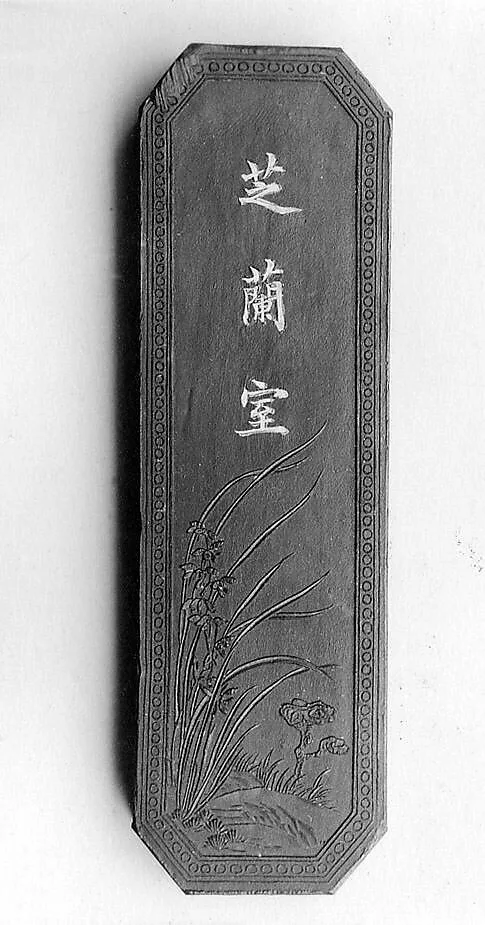 芝蘭室